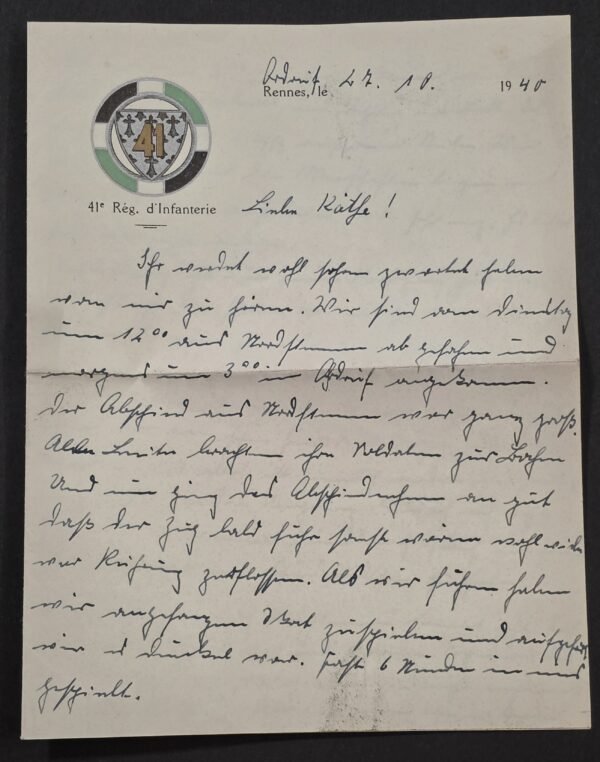 41
41e Rég. d'Infanterie
Ordruf 27. 10.
Rennes, le 1940
Liebe Käthe!
Ihr werdet wohl schon gewartet haben
von mir zu hören. Wir sind am Dienstag
um 12 00 aus Nordstemmen ab gefahren und
morgens um 3 00 in Ordruf angekommen.
Der Abschied aus Nordstemmen war ganz groß.
Alle Leute brachten ihre Soldaten zur Bahn
Und nun ging das Abschiednehmen an gut
daß der Zug bald fuhr sonst wären wohl viele
vor Rührung zerflossen. Als wir fuhren haben
wir angefangen Skat zuspielen und aufgehört
wie es dunkel war. Fast 6 Stunden in uns
gespielt.